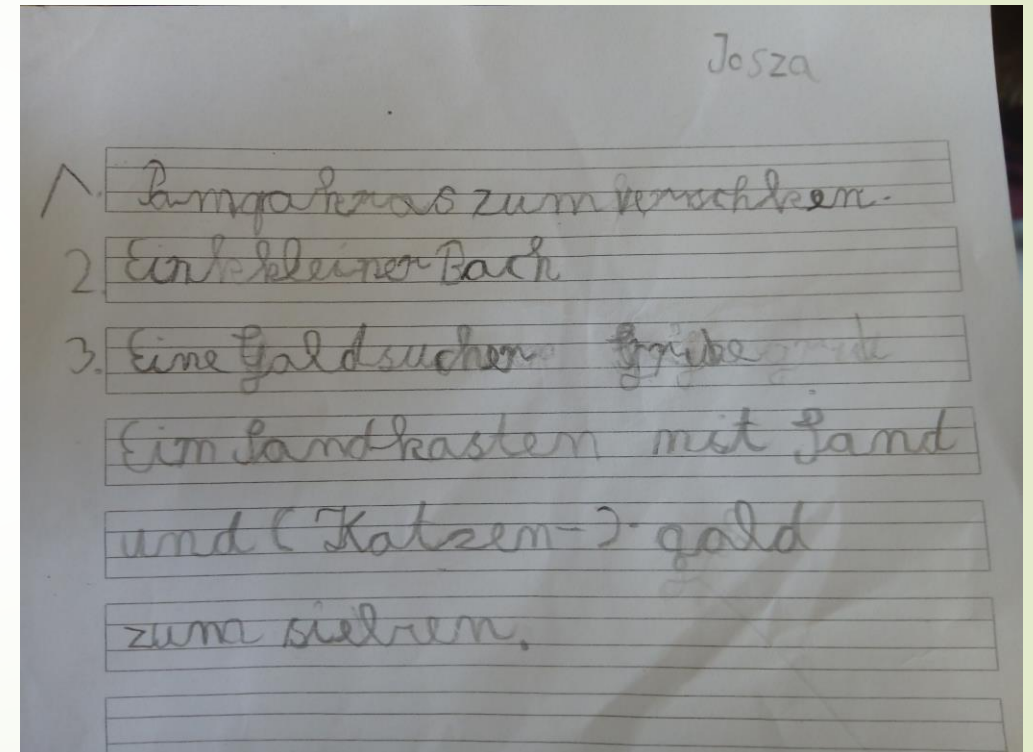 Josza
1. zum
2. Ein kleiner Bach
3. Eine Goldsucher Grube
Ein Sandkasten mit Sand
und (Katzen-)gold
zum sieben.